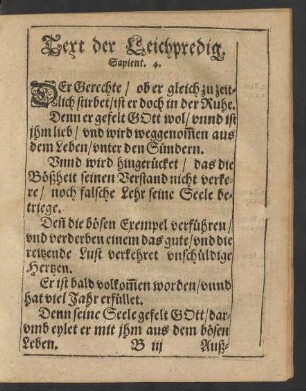 Text der Leichpredig.
Sapient. 4.
DEr Gerechte / ob er gleich zu zeit-
lich stirbet / ist er doch in der Ruhe.
Denn er gefelt GOtt wol / vnnd ist
jhm lieb / vnd wird weggenom̃en aus
dem Leben / vnter den Sündern.
Vnnd wird hingerücket / das die
Bößheit seinen Verstand nicht verke-
re / noch falsche Lehr seine Seele be-
triege.
Deñ die bösen Exempel verführen /
vnd verderben einem das gute / vnd die
reitzende Lust verkehret vnschüldige
Hertzen.
Er ist bald volkom̃en worden / vnnd
hat viel Jahr erfüllet.
Denn seine Seele gefelt GOtt / dar-
vmb eylet er mit jhm aus dem bösen
Leben. B iij Auß-